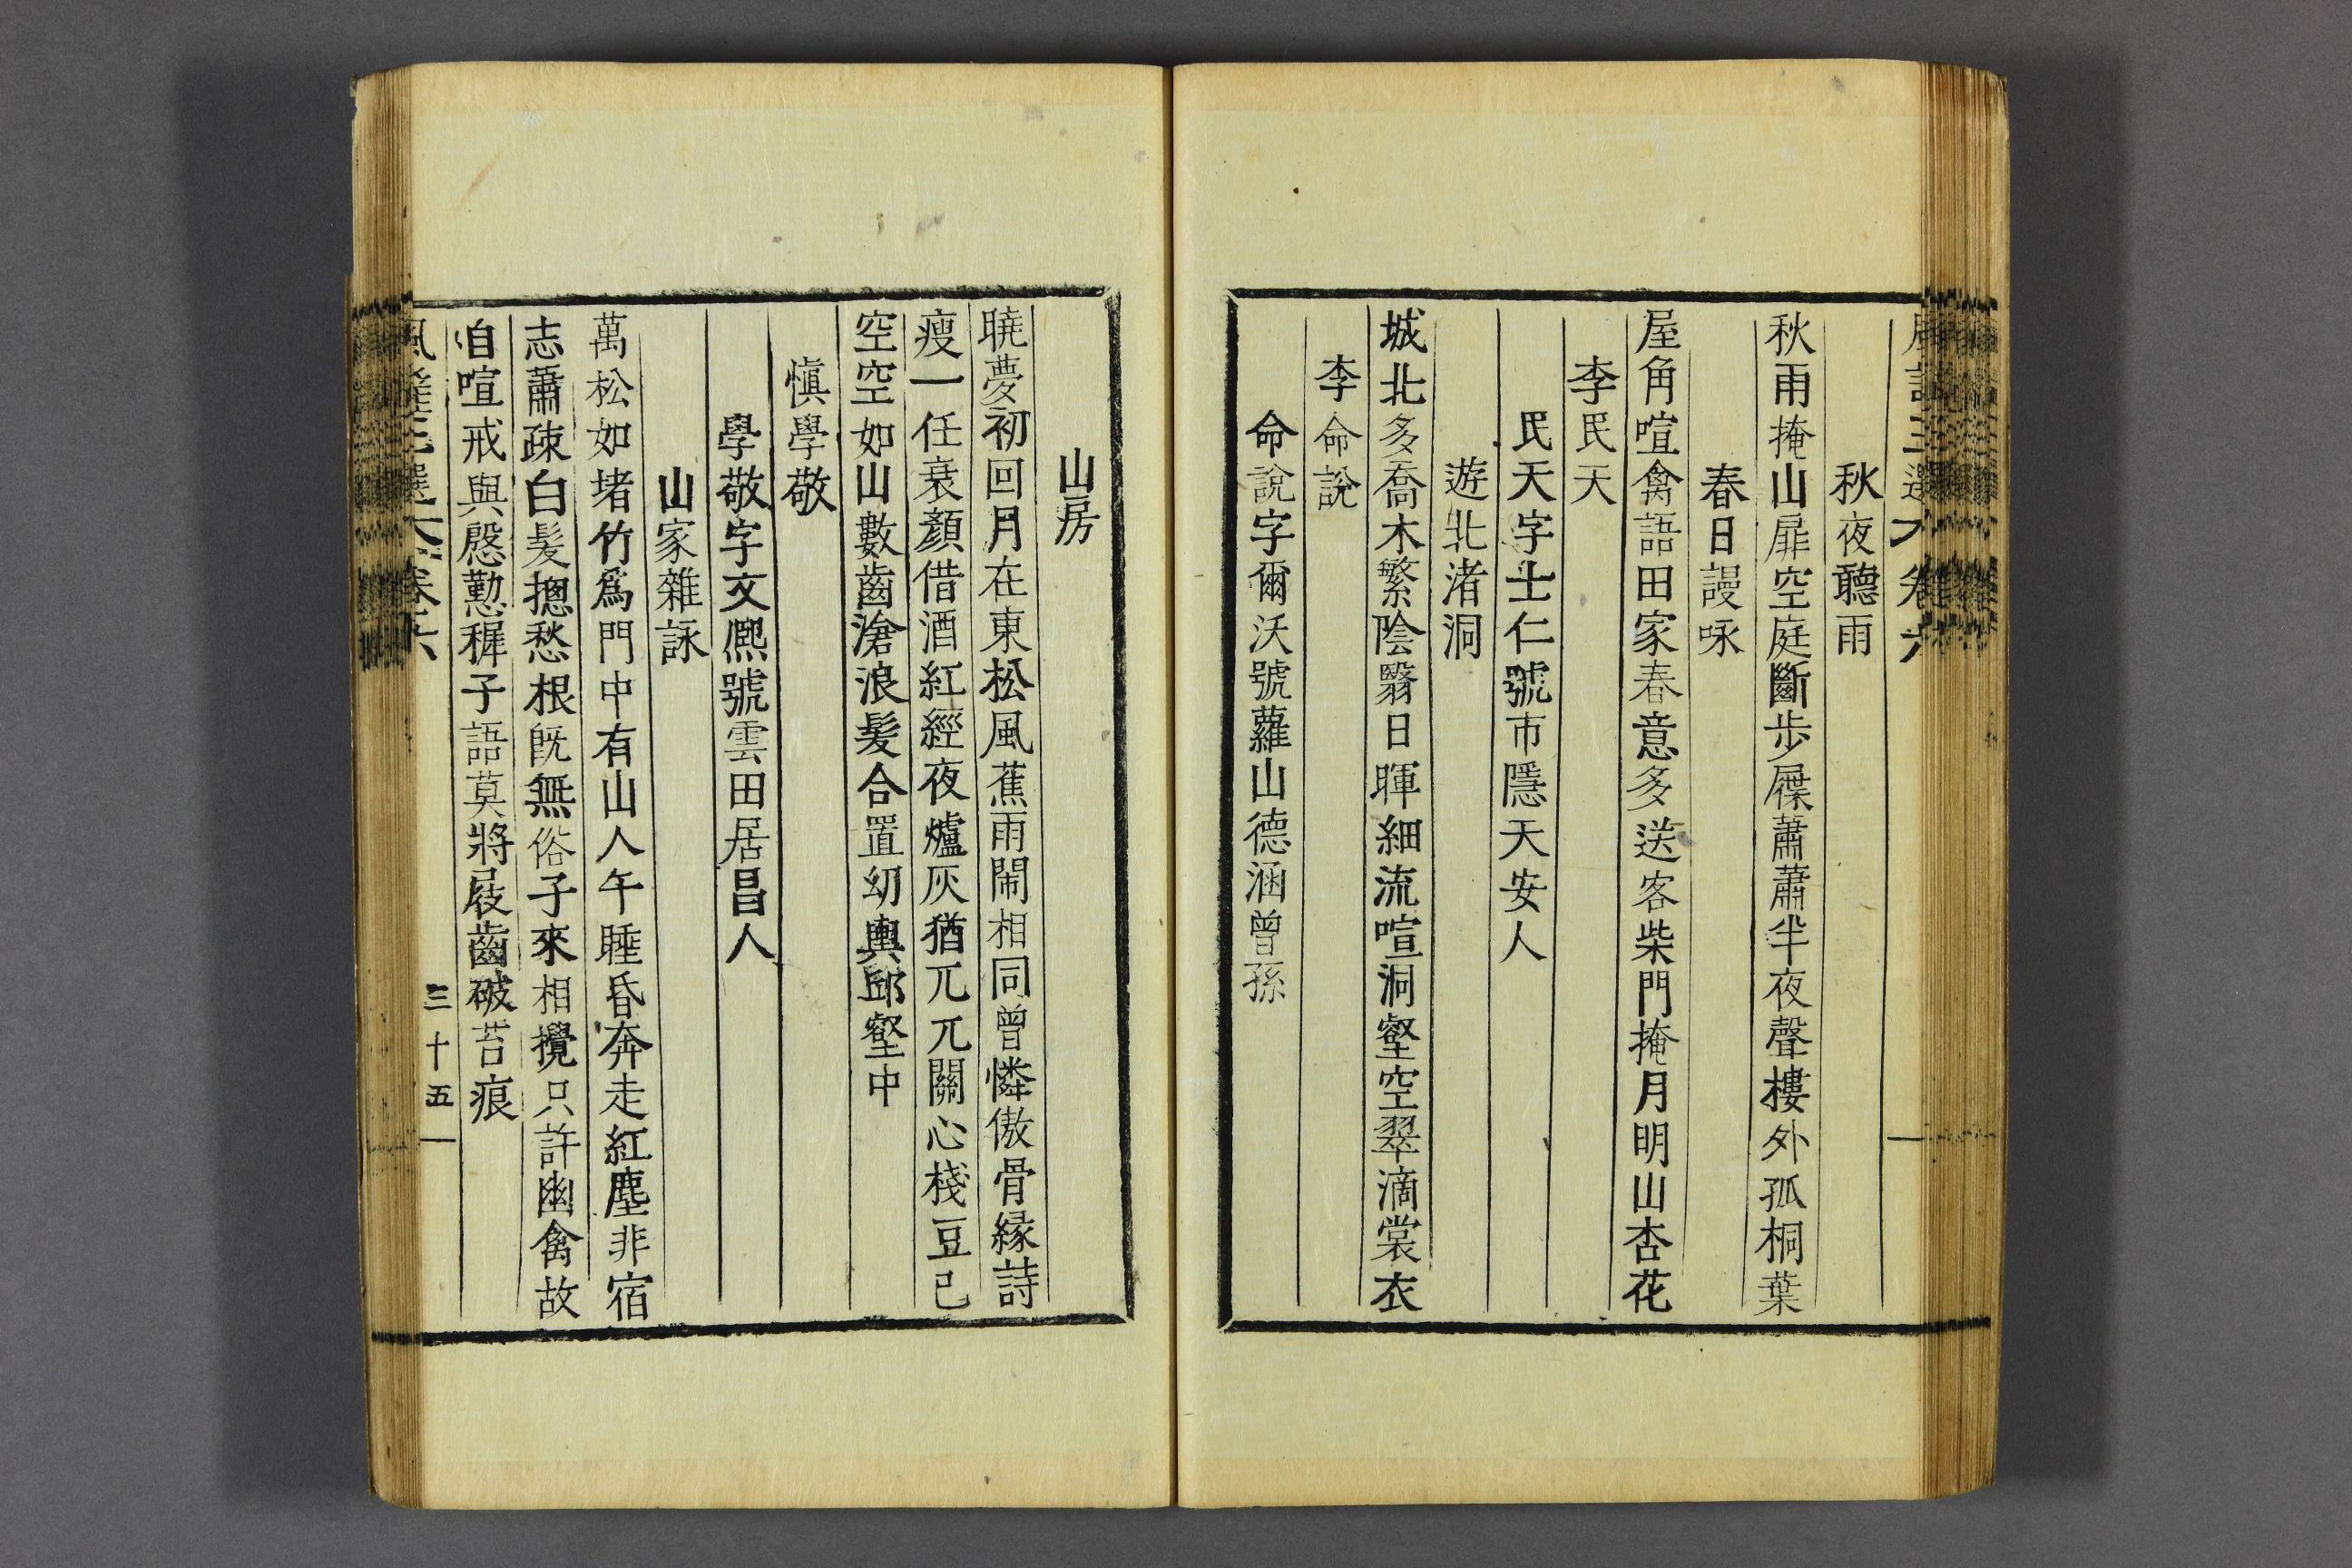 秋夜聽雨
秋雨掩山扉空庭斷步屧蕭蕭半夜聲樓外孤桐葉
春日謾咏
屋角喧禽語田家春意多送客柴門掩月明山杏花
李民天
民天字士仁號市隱天安人
遊北渚洞
城北多喬木繁陰翳日暉細流喧洞壑空翠滴裳衣
李命說
命說字爾沃號蘿山德涵曾孫
山房
曉夢初回月在東松風蕉雨鬧相同曾憐傲骨緣詩
瘦一任衰顏借酒紅經夜爐灰猶兀兀關心棧豆已
空空如山數齒滄浪髮合置幼輿邱壑中
愼學敬
學敬字文熙號雲田居昌人
山家雜詠
萬松如堵竹爲門中有山人午睡昏奔走紅塵非宿
志蕭疎白髮摠愁根旣無俗子來相攪只許幽禽故
自喧戒與慇懃穉子語莫將屐齒破苔痕
三十五